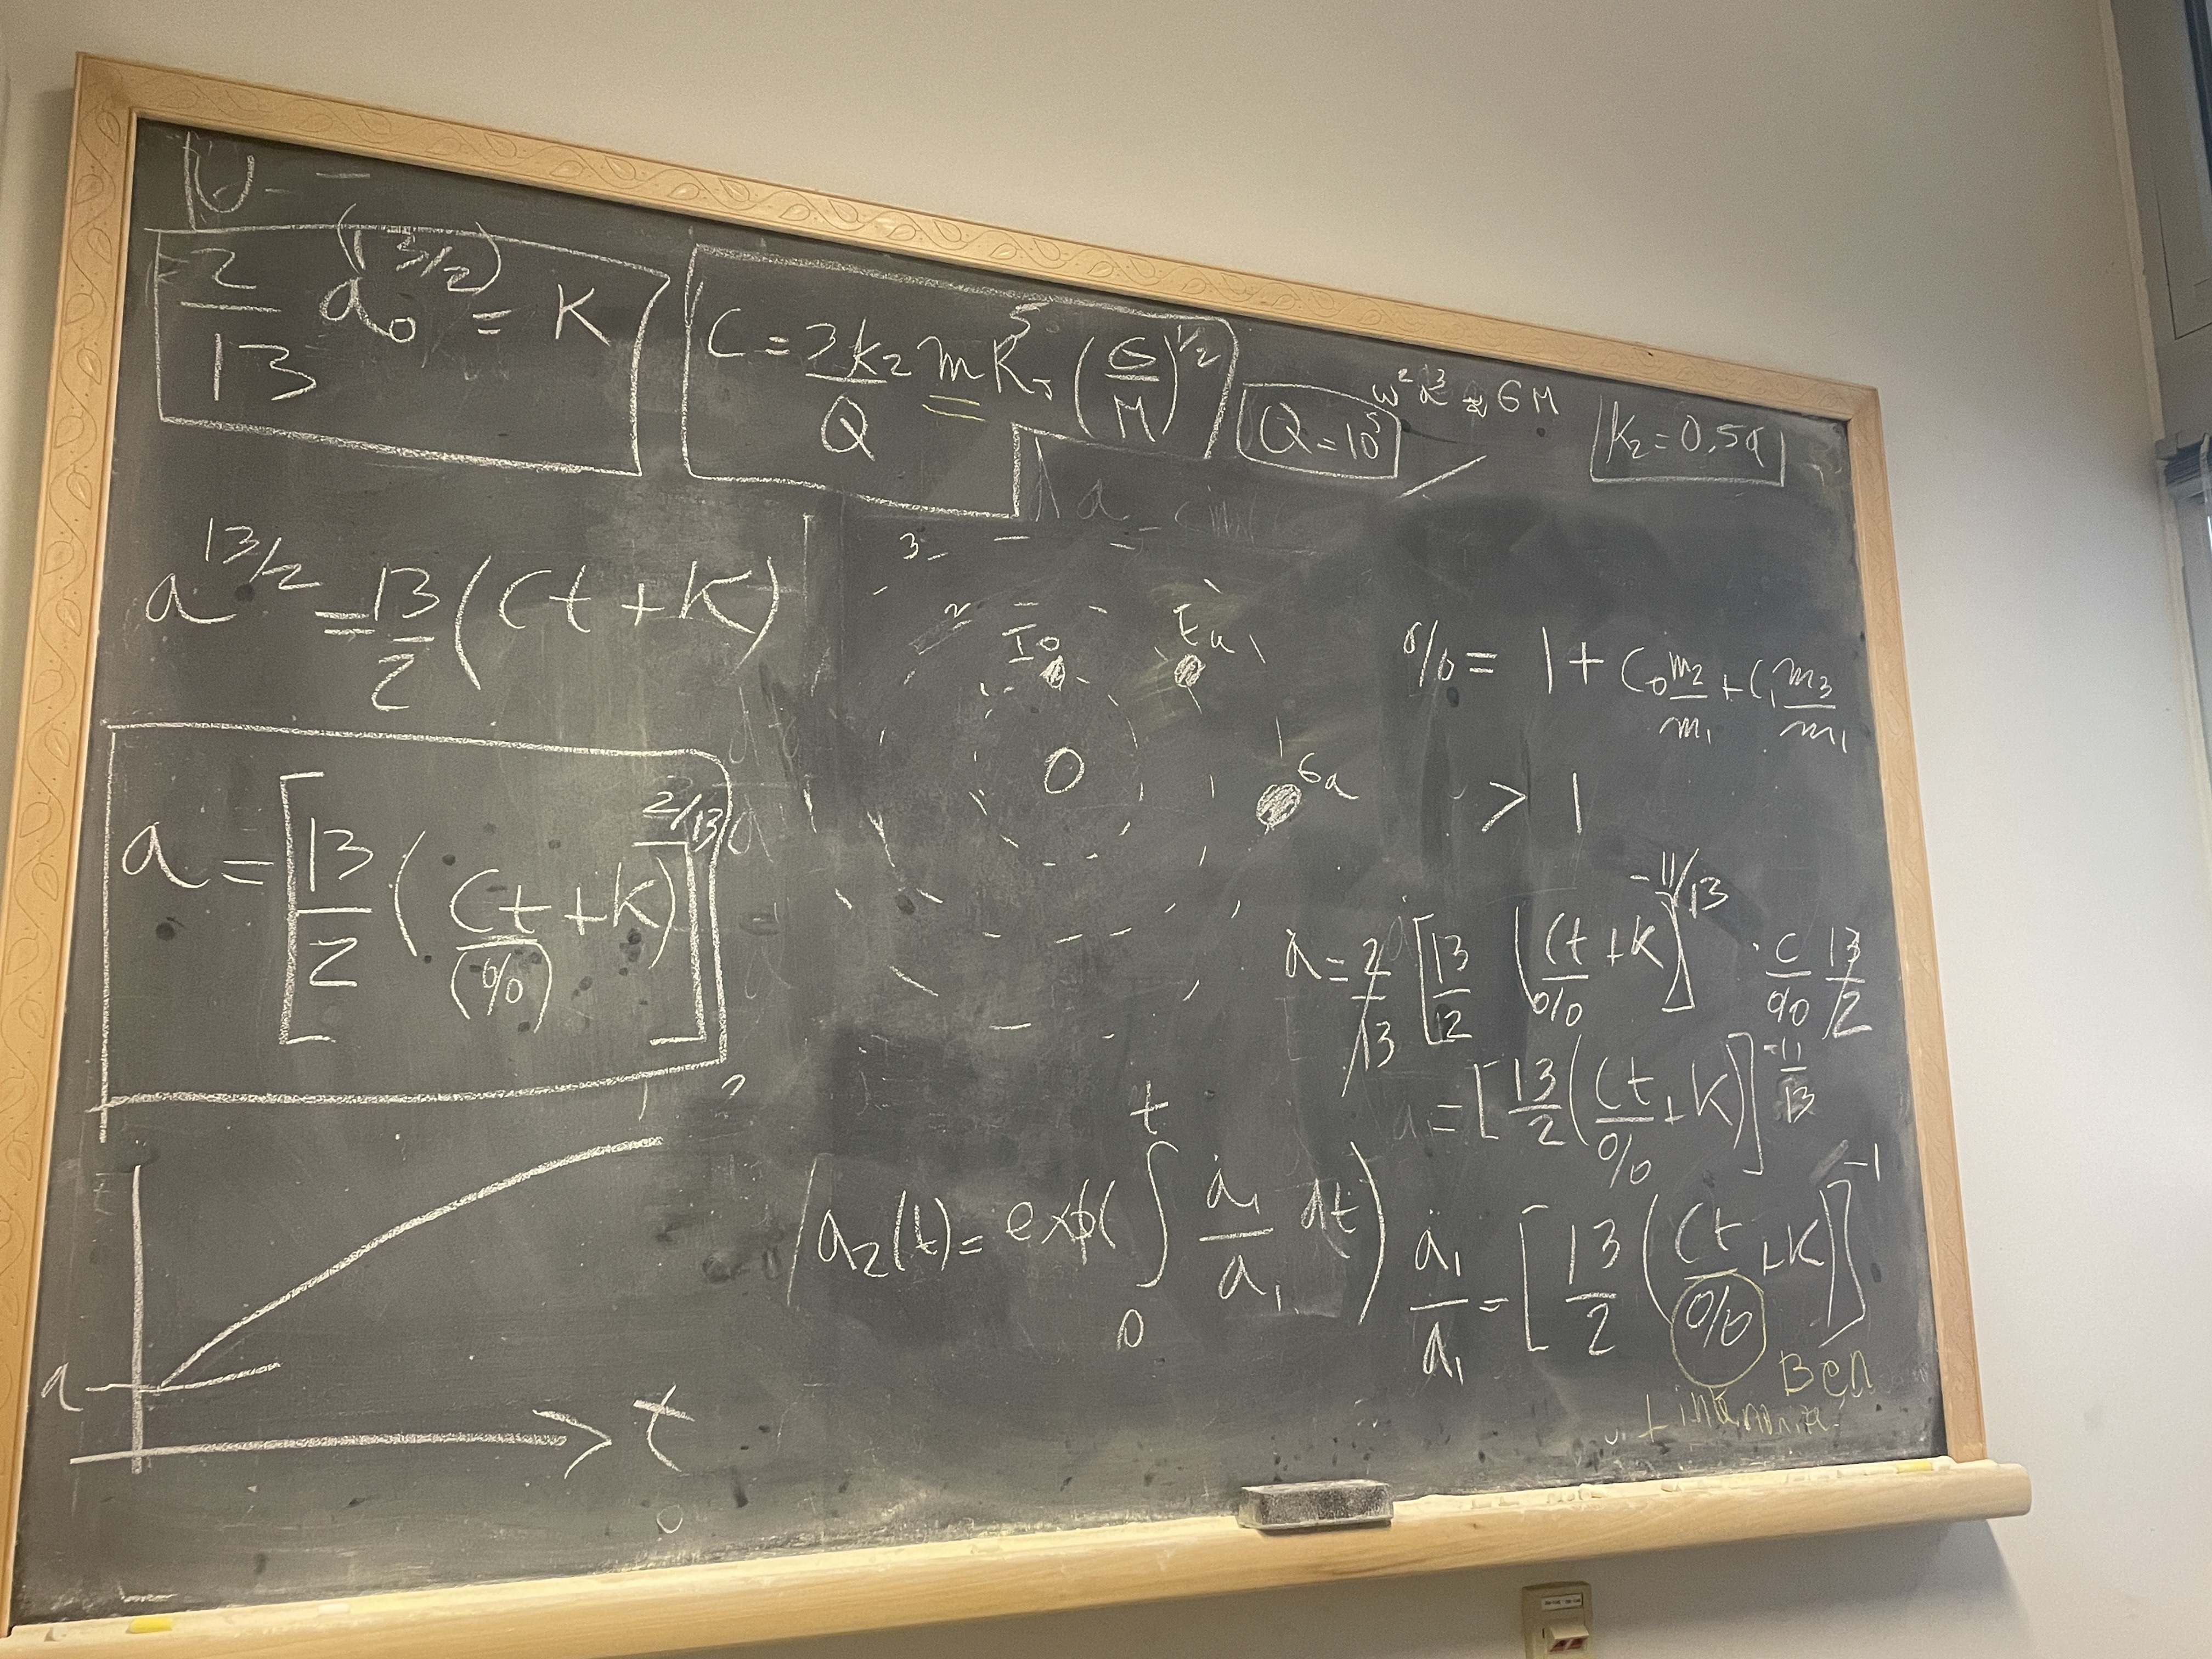 2/13 a₀^(13/2) = K
C = 3k₂/Q m R_J⁵ (G/M)^1/2
Q = 10⁵
ω²a³ = GM
K₂ = 0.59
a^13/2 = 13/2 (Ct + K)
3
2
Io
Eu
Ga
% = 1 + C₀ m₂/m₁ + C₁ m₃/m₁
> 1
a = [13/2 (Ct/(%) + K)]^2/13
ȧ = 2/13 [13/2 (Ct/% + K)]^-11/13 · C/% 13/2
= [13/2 (Ct/% + K)]^-11/13
a₂(t) = exp(∫₀ᵗ ȧ₁/a₁ dt)
ȧ₁/a₁ = [13/2 (Ct/% + K)]^-1
Ben
a
t